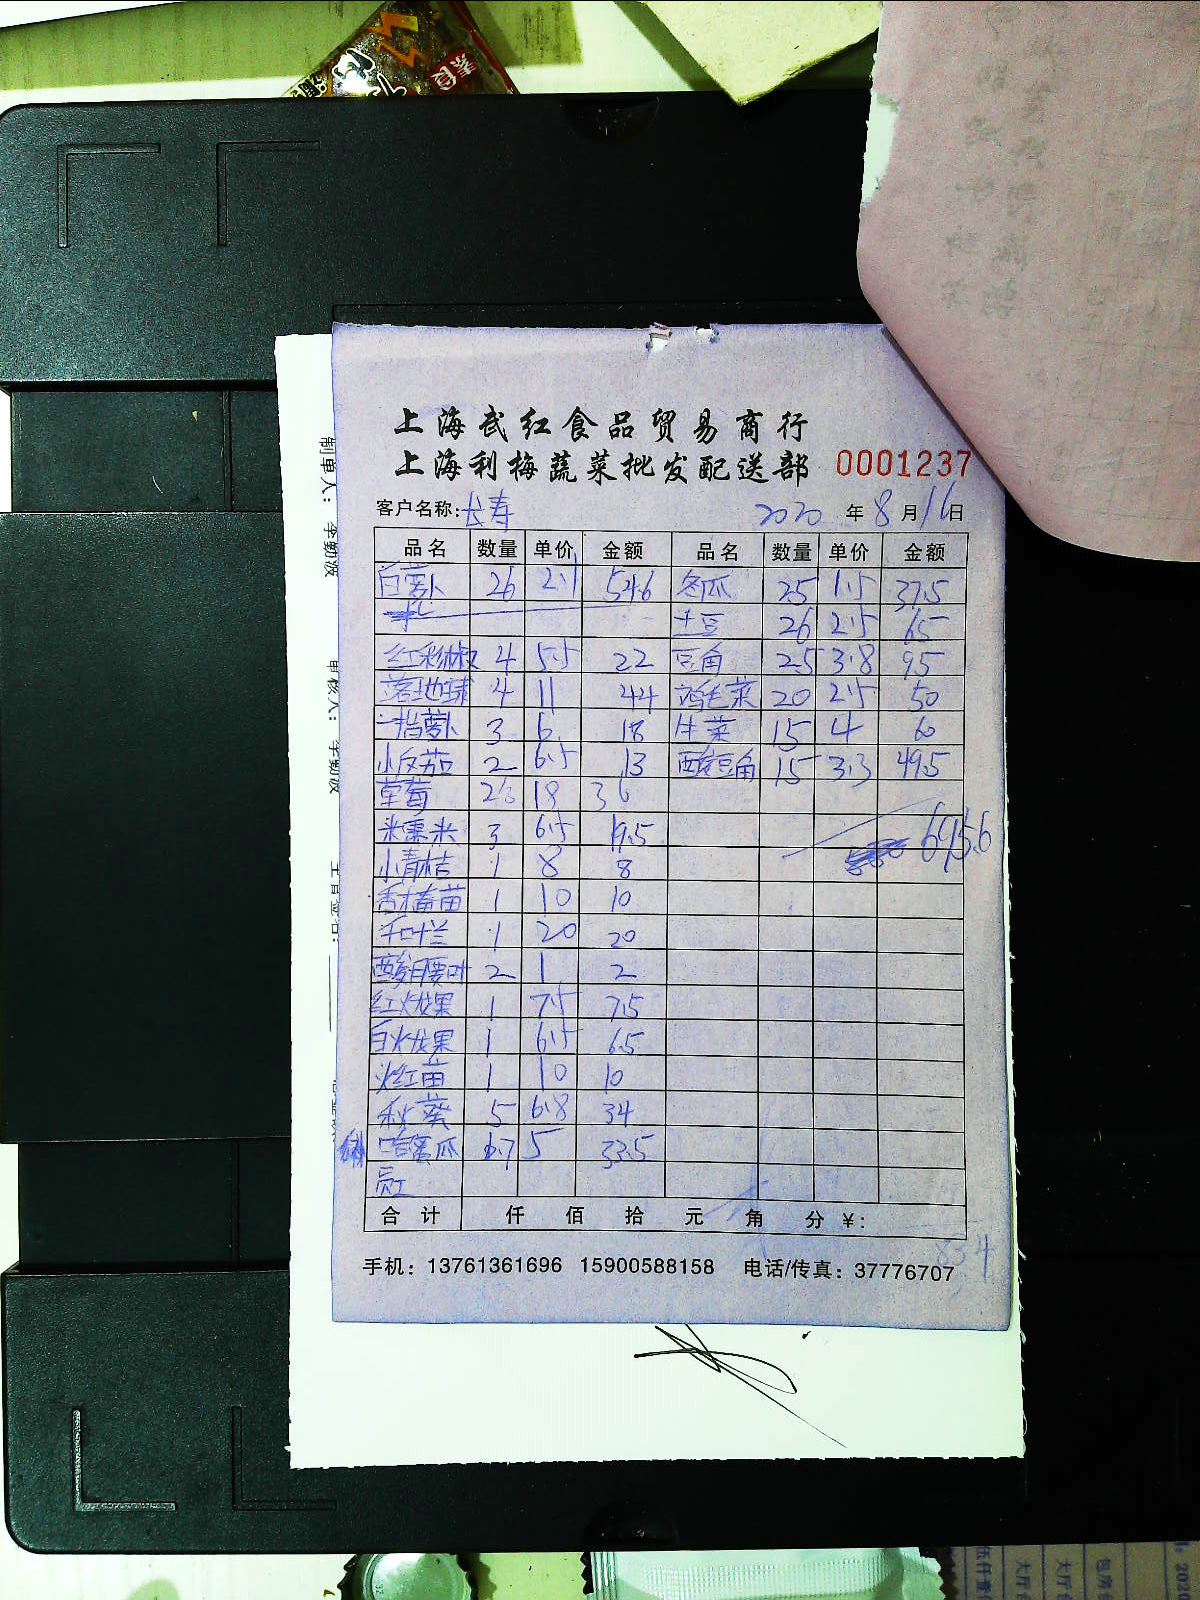 上海武红食品贸易商行
上海利梅蔬菜批发配送部 0001237
客户名称: 长寿 2020 年 8 月 16 日
品名 数量 单价 金额 品名 数量 单价 金额
白萝卜 26 2.1 54.6 冬瓜 25 1.5 37.5
土豆 26 2.5 65
红彩椒 4 5.5 22 豆角 25 3.8 95
落地球 4 11 44 鸡毛菜 20 2.5 50
一指萝卜 3 6 18 生菜 15 4 60
小反茄 2 6.5 13 酸豆角 15 3.3 49.5
草莓 2 18 36
米粟米 3 6.5 19.5 695.6
小青桔 1 8 8
香椿苗 1 10 10
千叶兰 1 20 20
酸腰叶 2 1 2
红火龙果 1 7.5 7.5
白火龙果 1 6.5 6.5
火红苗 1 10 10
秋葵 5 6.8 34
哈蜜瓜 6.7 5 33.5
合计 仟 佰 拾 元 角 分 ¥:
手机: 13761361696 15900588158 电话/传真: 37776707
制单人: 李勤波
审核人: 李勤波